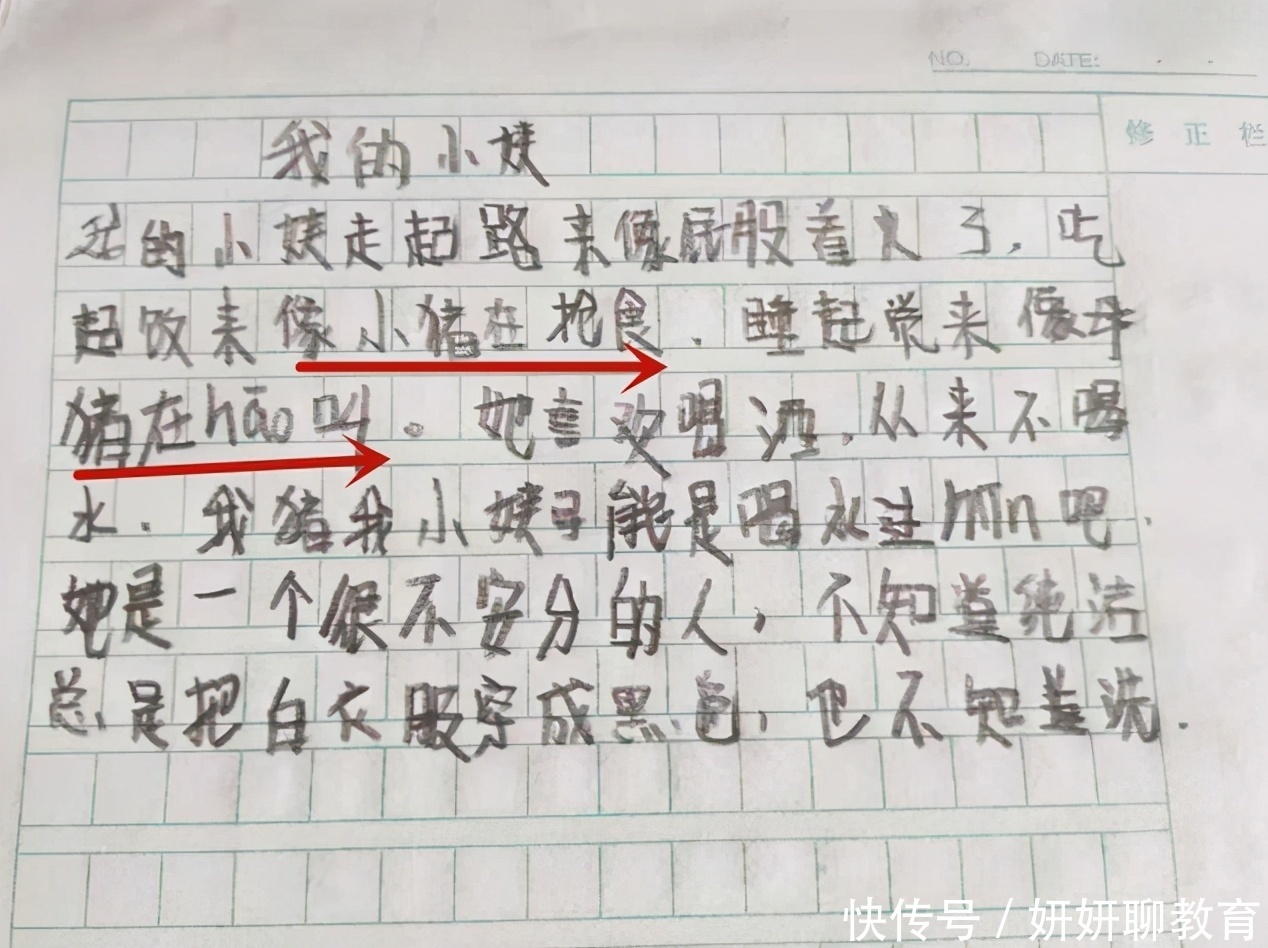 NO. DATE:
修正栏
我的小姨
我的小姨走起路来像屁股着火了,吃
起饭来像小猪在抢食.睡起觉来像母
猪在hāo叫。她喜欢喝酒.从来不喝
水.我猪我小姨可能是喝水过mǐn吧.
她是一个很不安分的人,不知道纯洁
总是把白衣服穿成黑色,也不知道洗.
快传号 / 妍妍聊教育